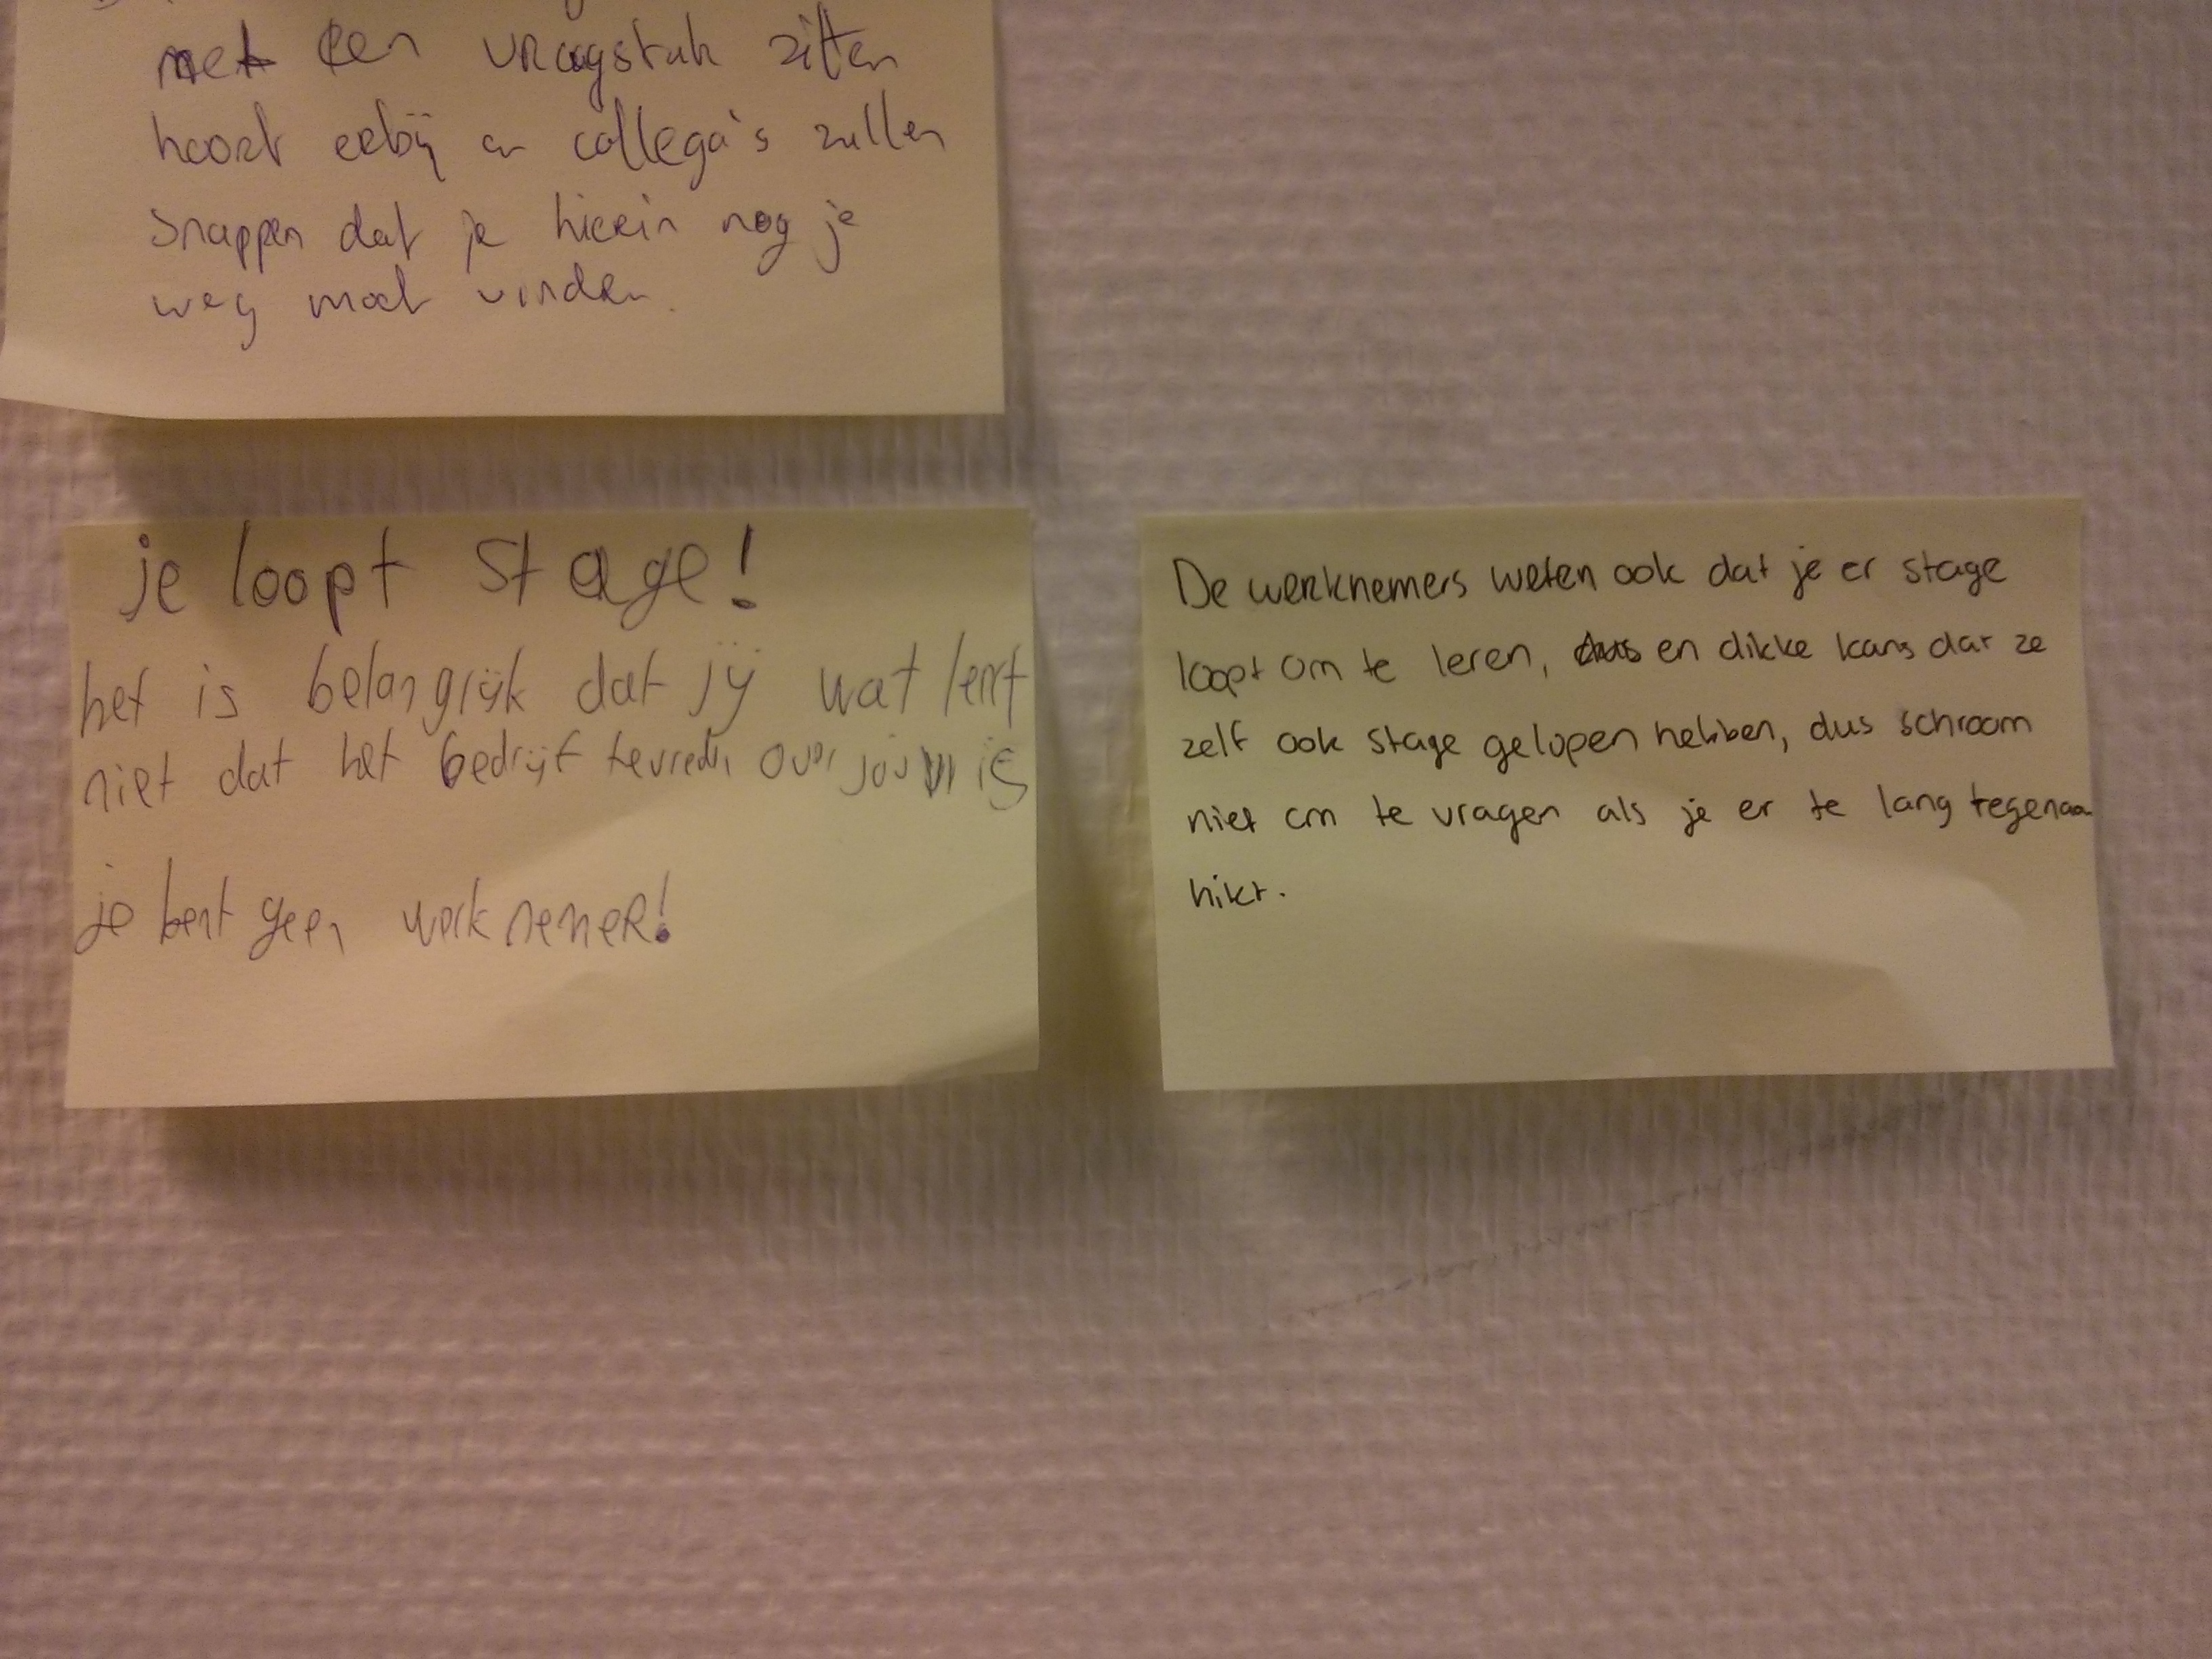 met een vraagstuk zitten
hoort erbij en collega's zullen
snappen dat je hierin nog je
weg moet vinden.
je loopt stage!
het is belangrijk dat jij wat lert
niet dat het bedrijf tevreden over jou is
je bent geen werknemer!
De werknemers weten ook dat je er stage
loopt om te leren, en dikke kans dat ze
zelf ook stage gelopen hebben, dus schroom
niet om te vragen als je er te lang tegenaan
hikt.